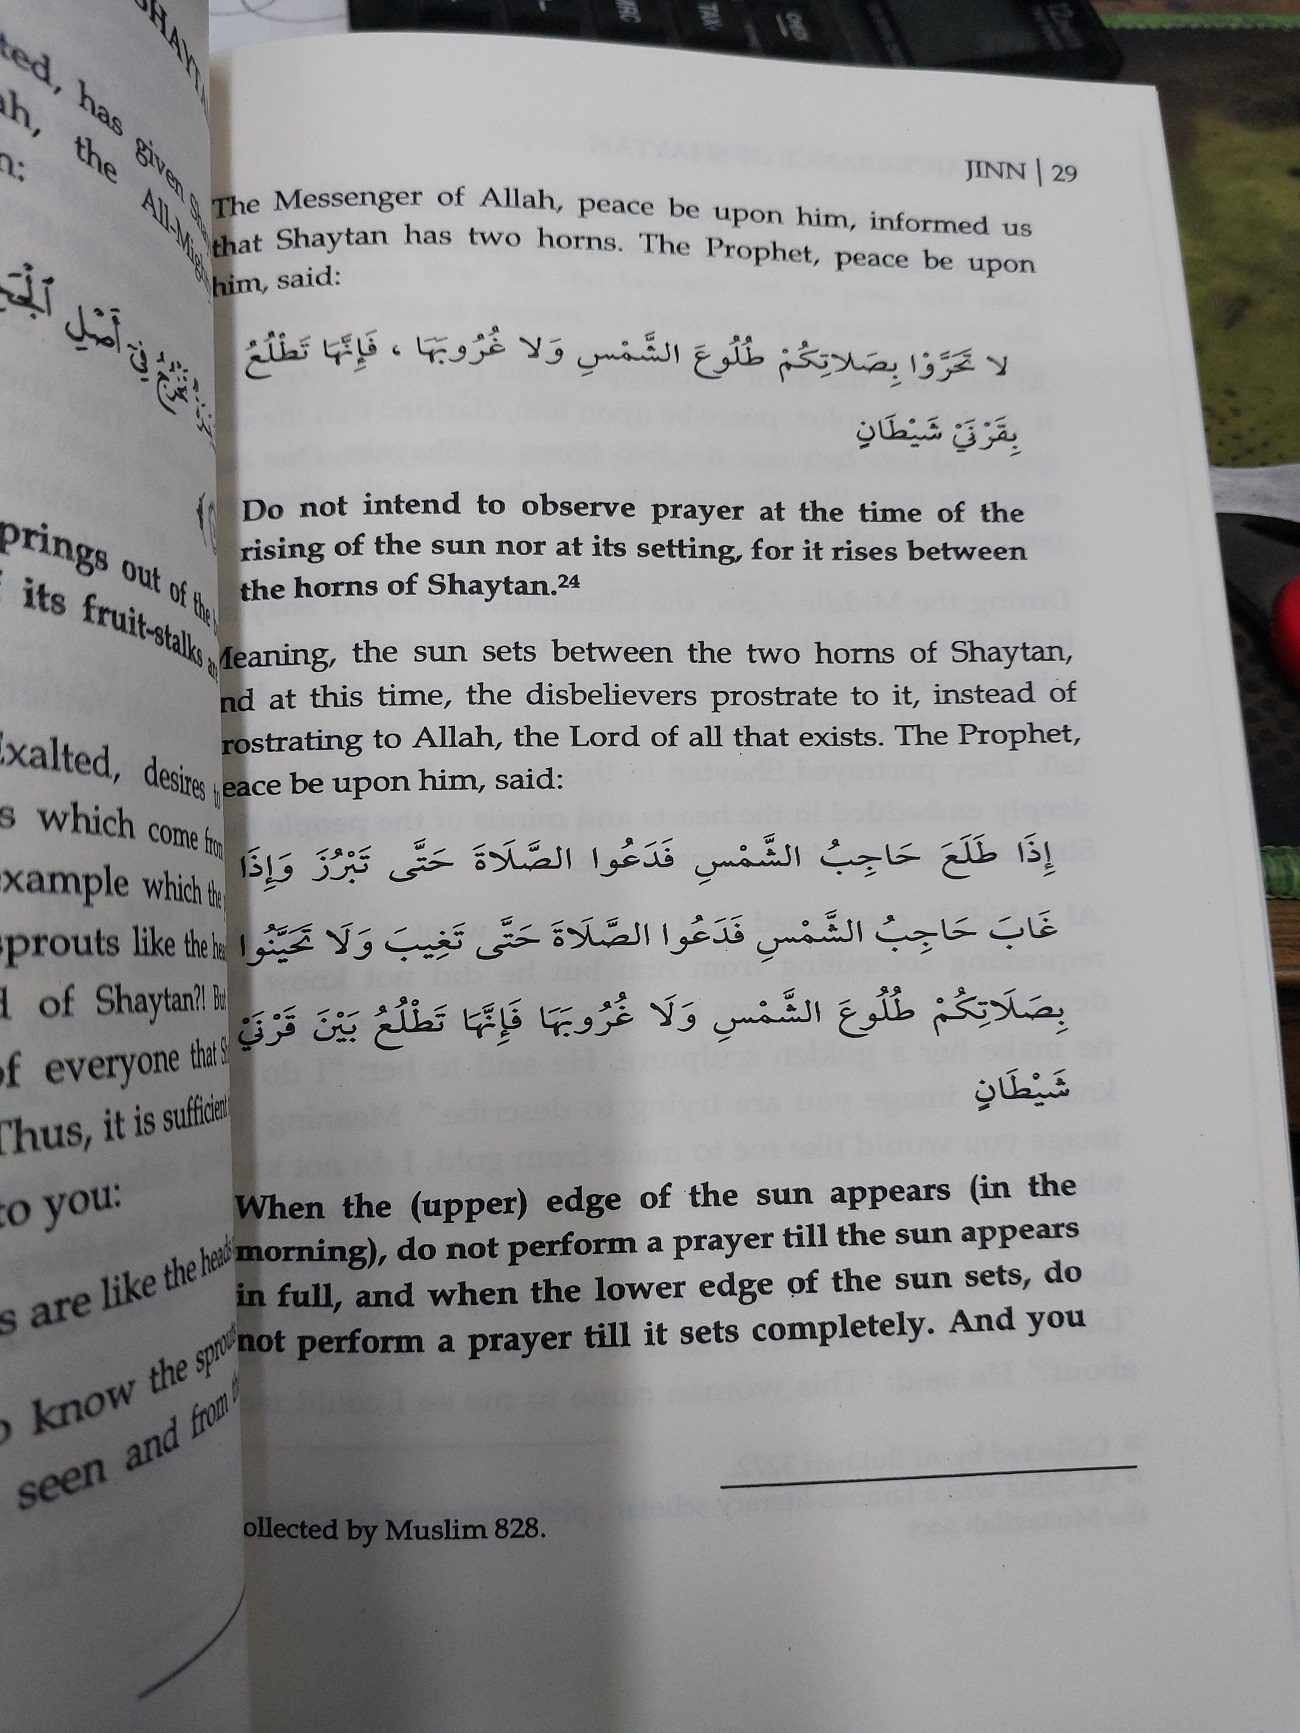 ted, has given
ah, the All-Migh
n:
prings out of the
its fruit-stalks
Exalted, desires
s which come from
xample which the
sprouts like the
of Shaytan?! But
of everyone that
Thus, it is sufficient
to you:
s are like the heads
know the
seen and from
JINN | 29
The Messenger of Allah, peace be upon him, informed us
that Shaytan has two horns. The Prophet, peace be upon
him, said:
لا تَحَرَّوْا بِصَلاتِكُمْ طُلُوعَ الشَّمْسِ وَلا غُرُوبَهَا ، فَإِنَّهَا تَطْلُعُ
بِقَرْنَيْ شَيْطَانٍ
Do not intend to observe prayer at the time of the
rising of the sun nor at its setting, for it rises between
the horns of Shaytan.24
Meaning, the sun sets between the two horns of Shaytan,
nd at this time, the disbelievers prostrate to it, instead of
rostrating to Allah, the Lord of all that exists. The Prophet,
eace be upon him, said:
إِذَا طَلَعَ حَاجِبُ الشَّمْسِ فَدَعُوا الصَّلَاةَ حَتَّى تَبْرُزَ وَإِذَا
غَابَ حَاجِبُ الشَّمْسِ فَدَعُوا الصَّلَاةَ حَتَّى تَغِيبَ وَلَا تَحَيَّنُوا
بِصَلَاتِكُمْ طُلُوعَ الشَّمْسِ وَلَا غُرُوبَهَا فَإِنَّهَا تَطْلُعُ بَيْنَ قَرْنَيْ
شَيْطَانٍ
When the (upper) edge of the sun appears (in the
morning), do not perform a prayer till the sun appears
in full, and when the lower edge of the sun sets, do
not perform a prayer till it sets completely. And you
ollected by Muslim 828.